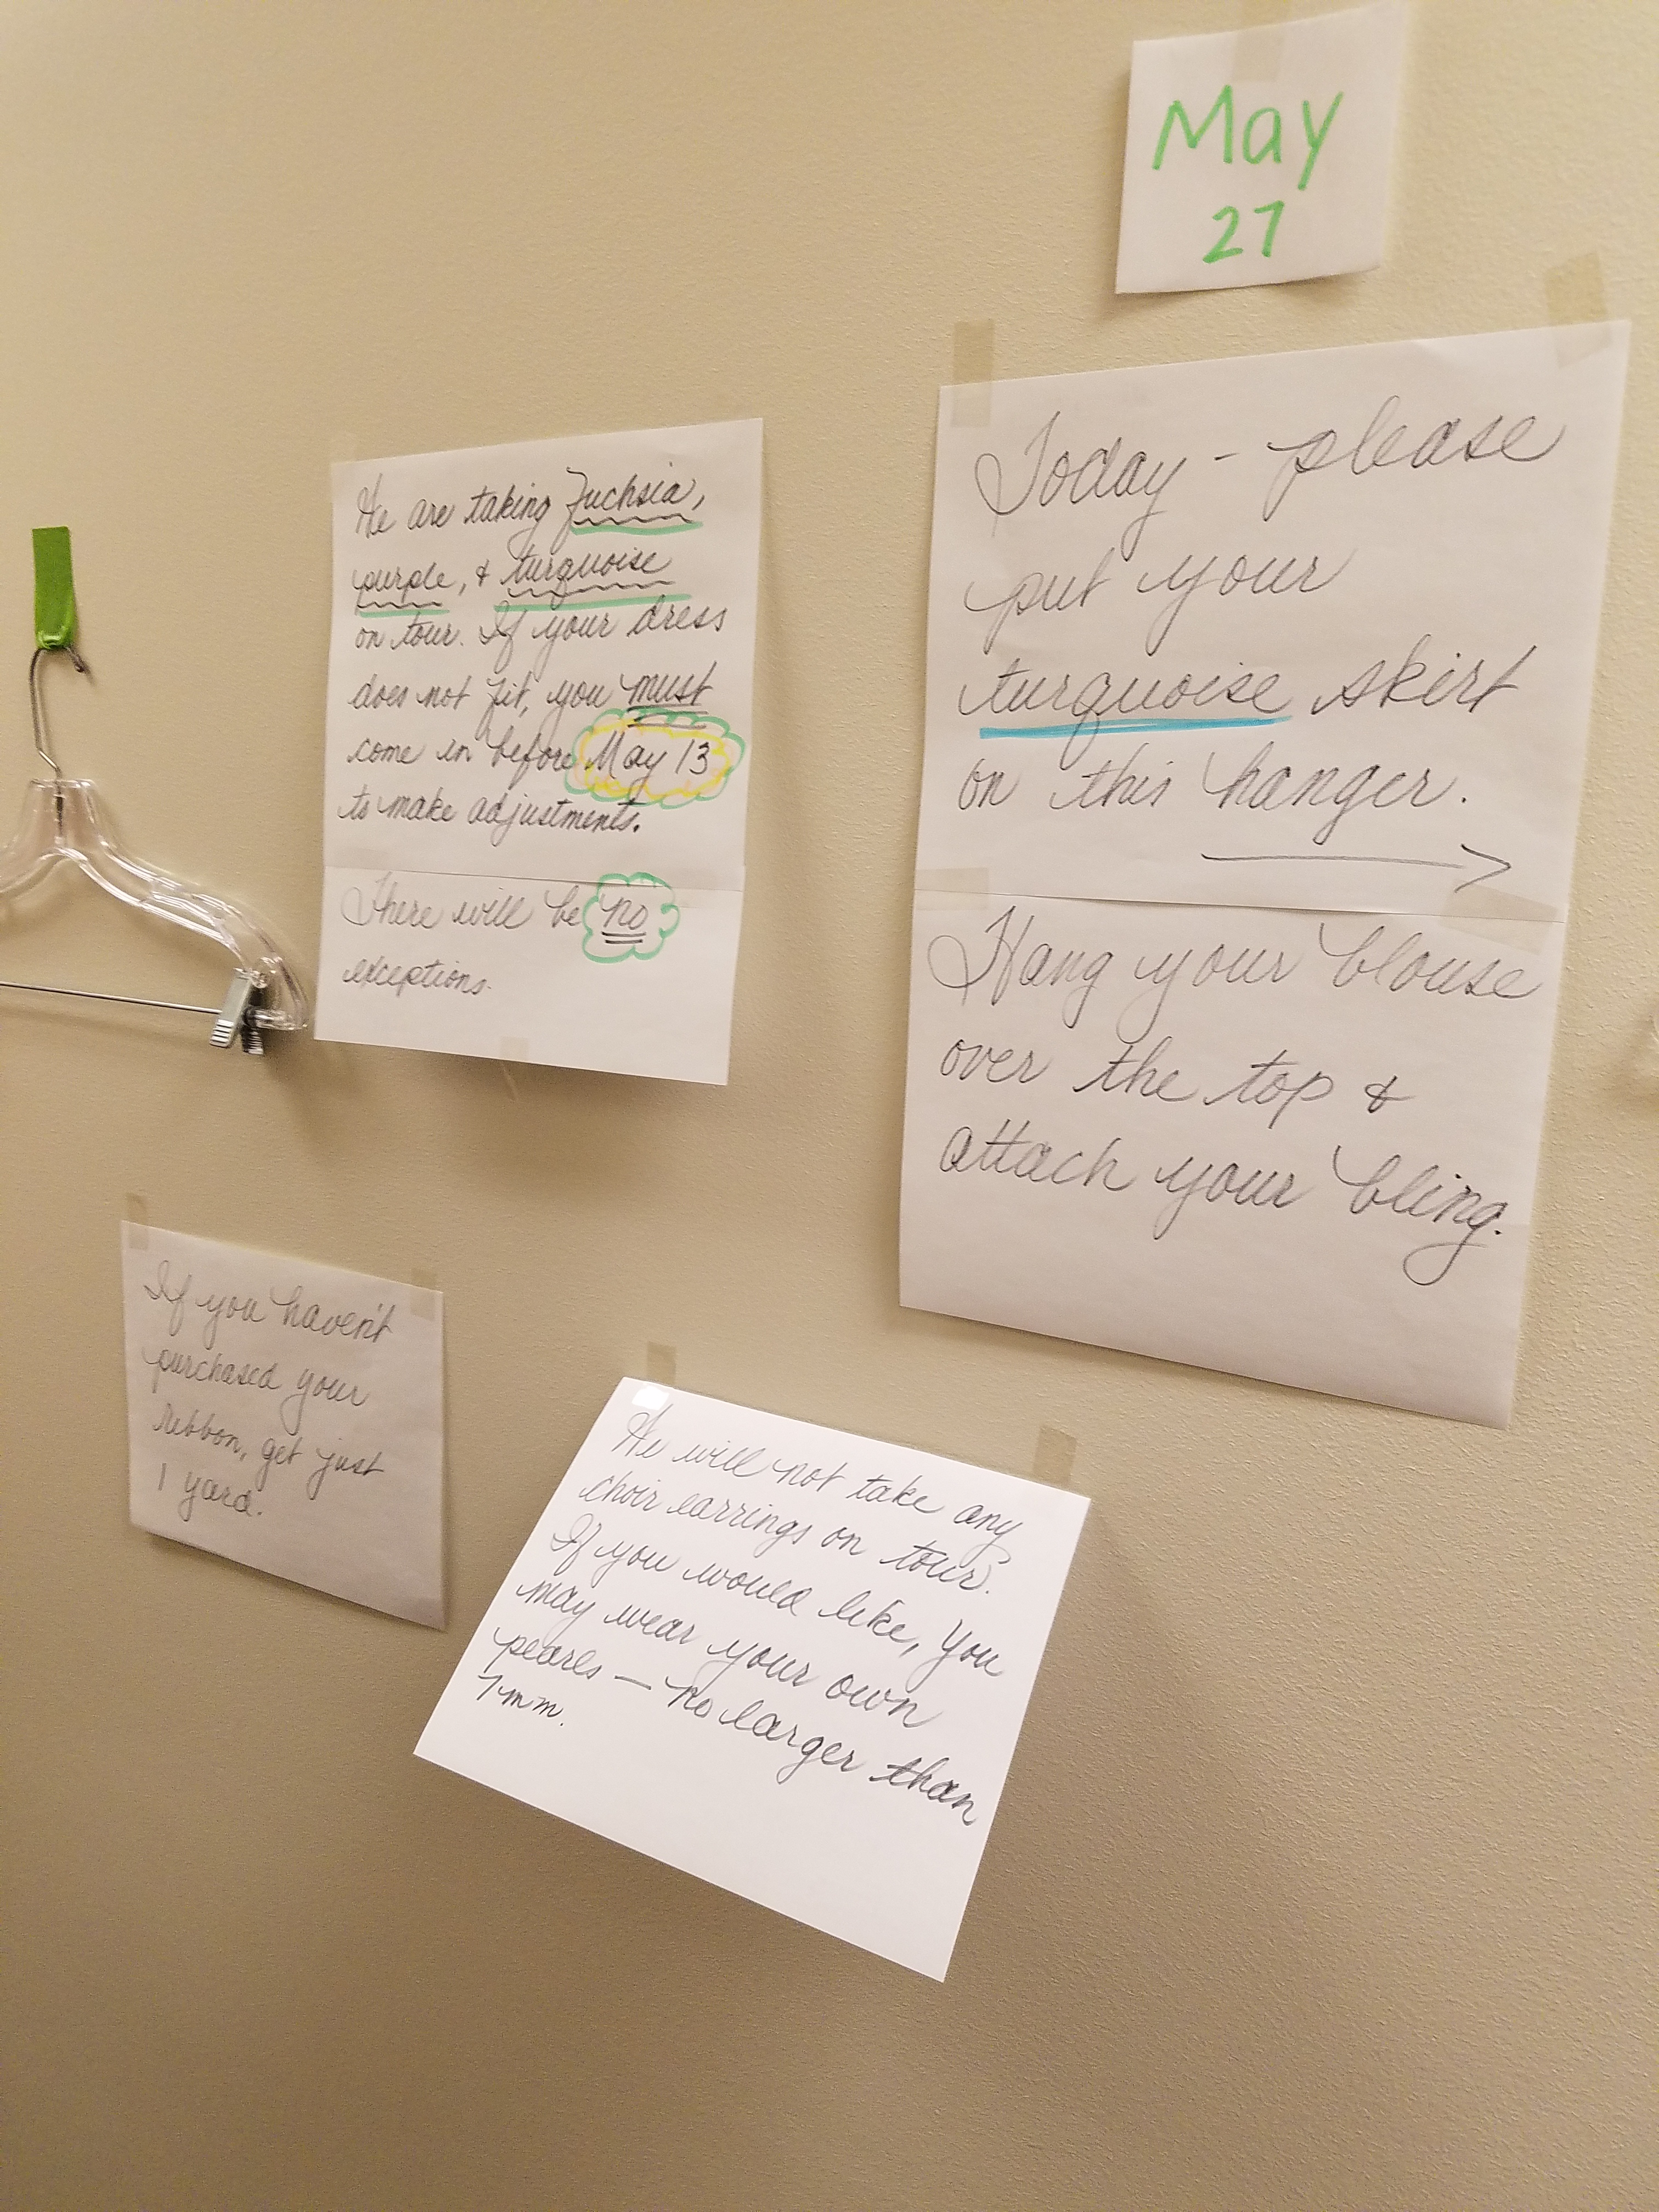 May
27
We are taking Fuchsia,
purple, & turquoise
on tour. If your dress
does not fit, you must
come in before May 13
to make adjustments.
There will be no
exceptions.
Today - please
put your
turquoise skirt
on this hanger.
Hang your blouse
over the top &
attach your bling.
If you haven't
purchased your
ribbon, get just
1 yard.
We will not take any
choir earrings on tour.
If you would like, you
may wear your own
pearls — no larger than
7mm.